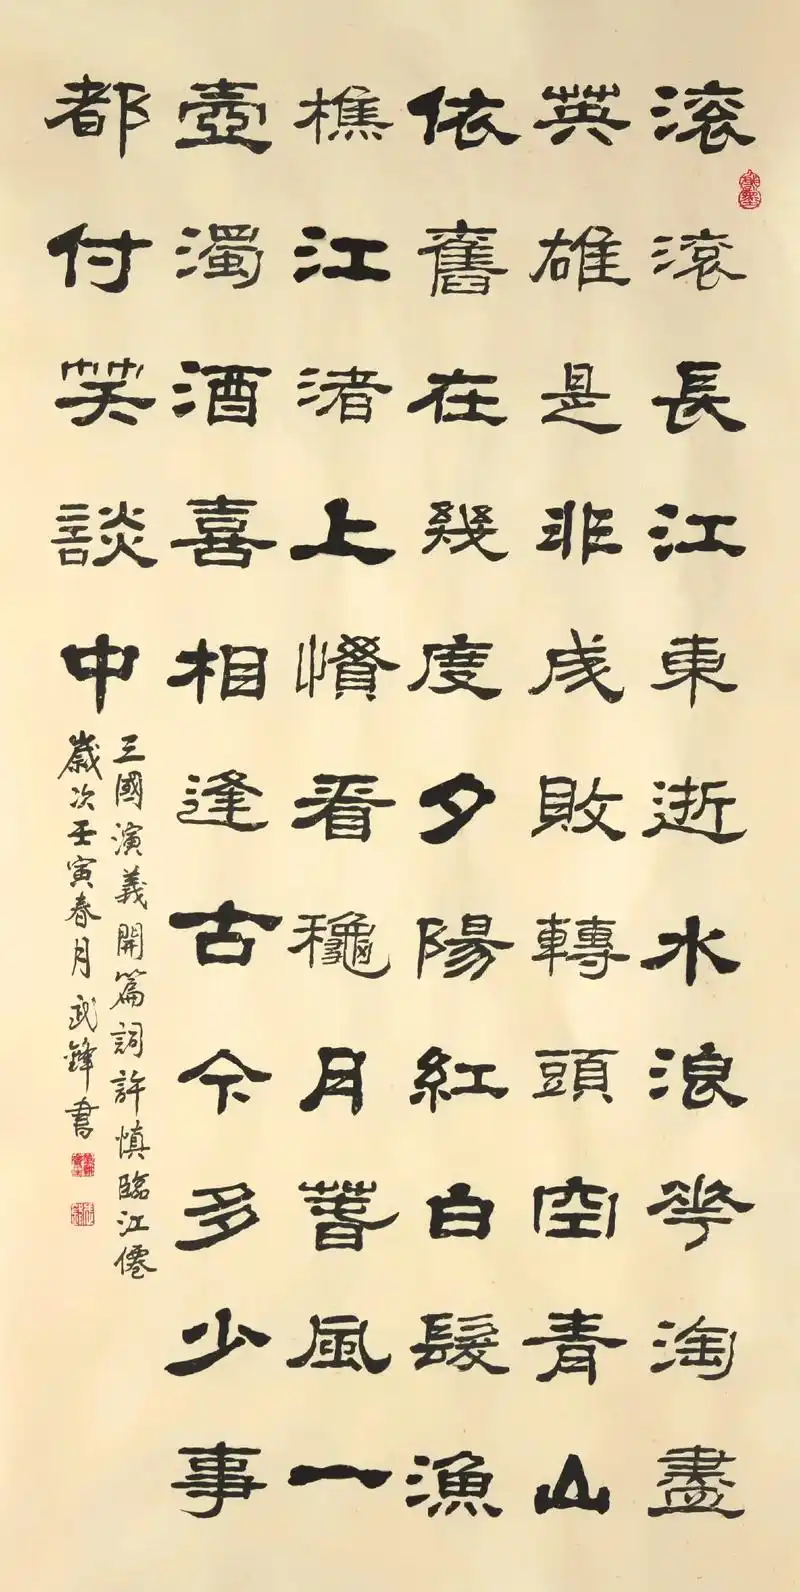 滚滚長江東逝水浪花淘盡
英雄是非成敗轉頭空青山
依舊在幾度夕陽紅白髮漁
樵江渚上慣看龝月萅風一
壺濁酒喜相逢古今多少事
都付笑談中
三國演義開篇詞許慎臨江僊
歲次壬寅春月武鋒書